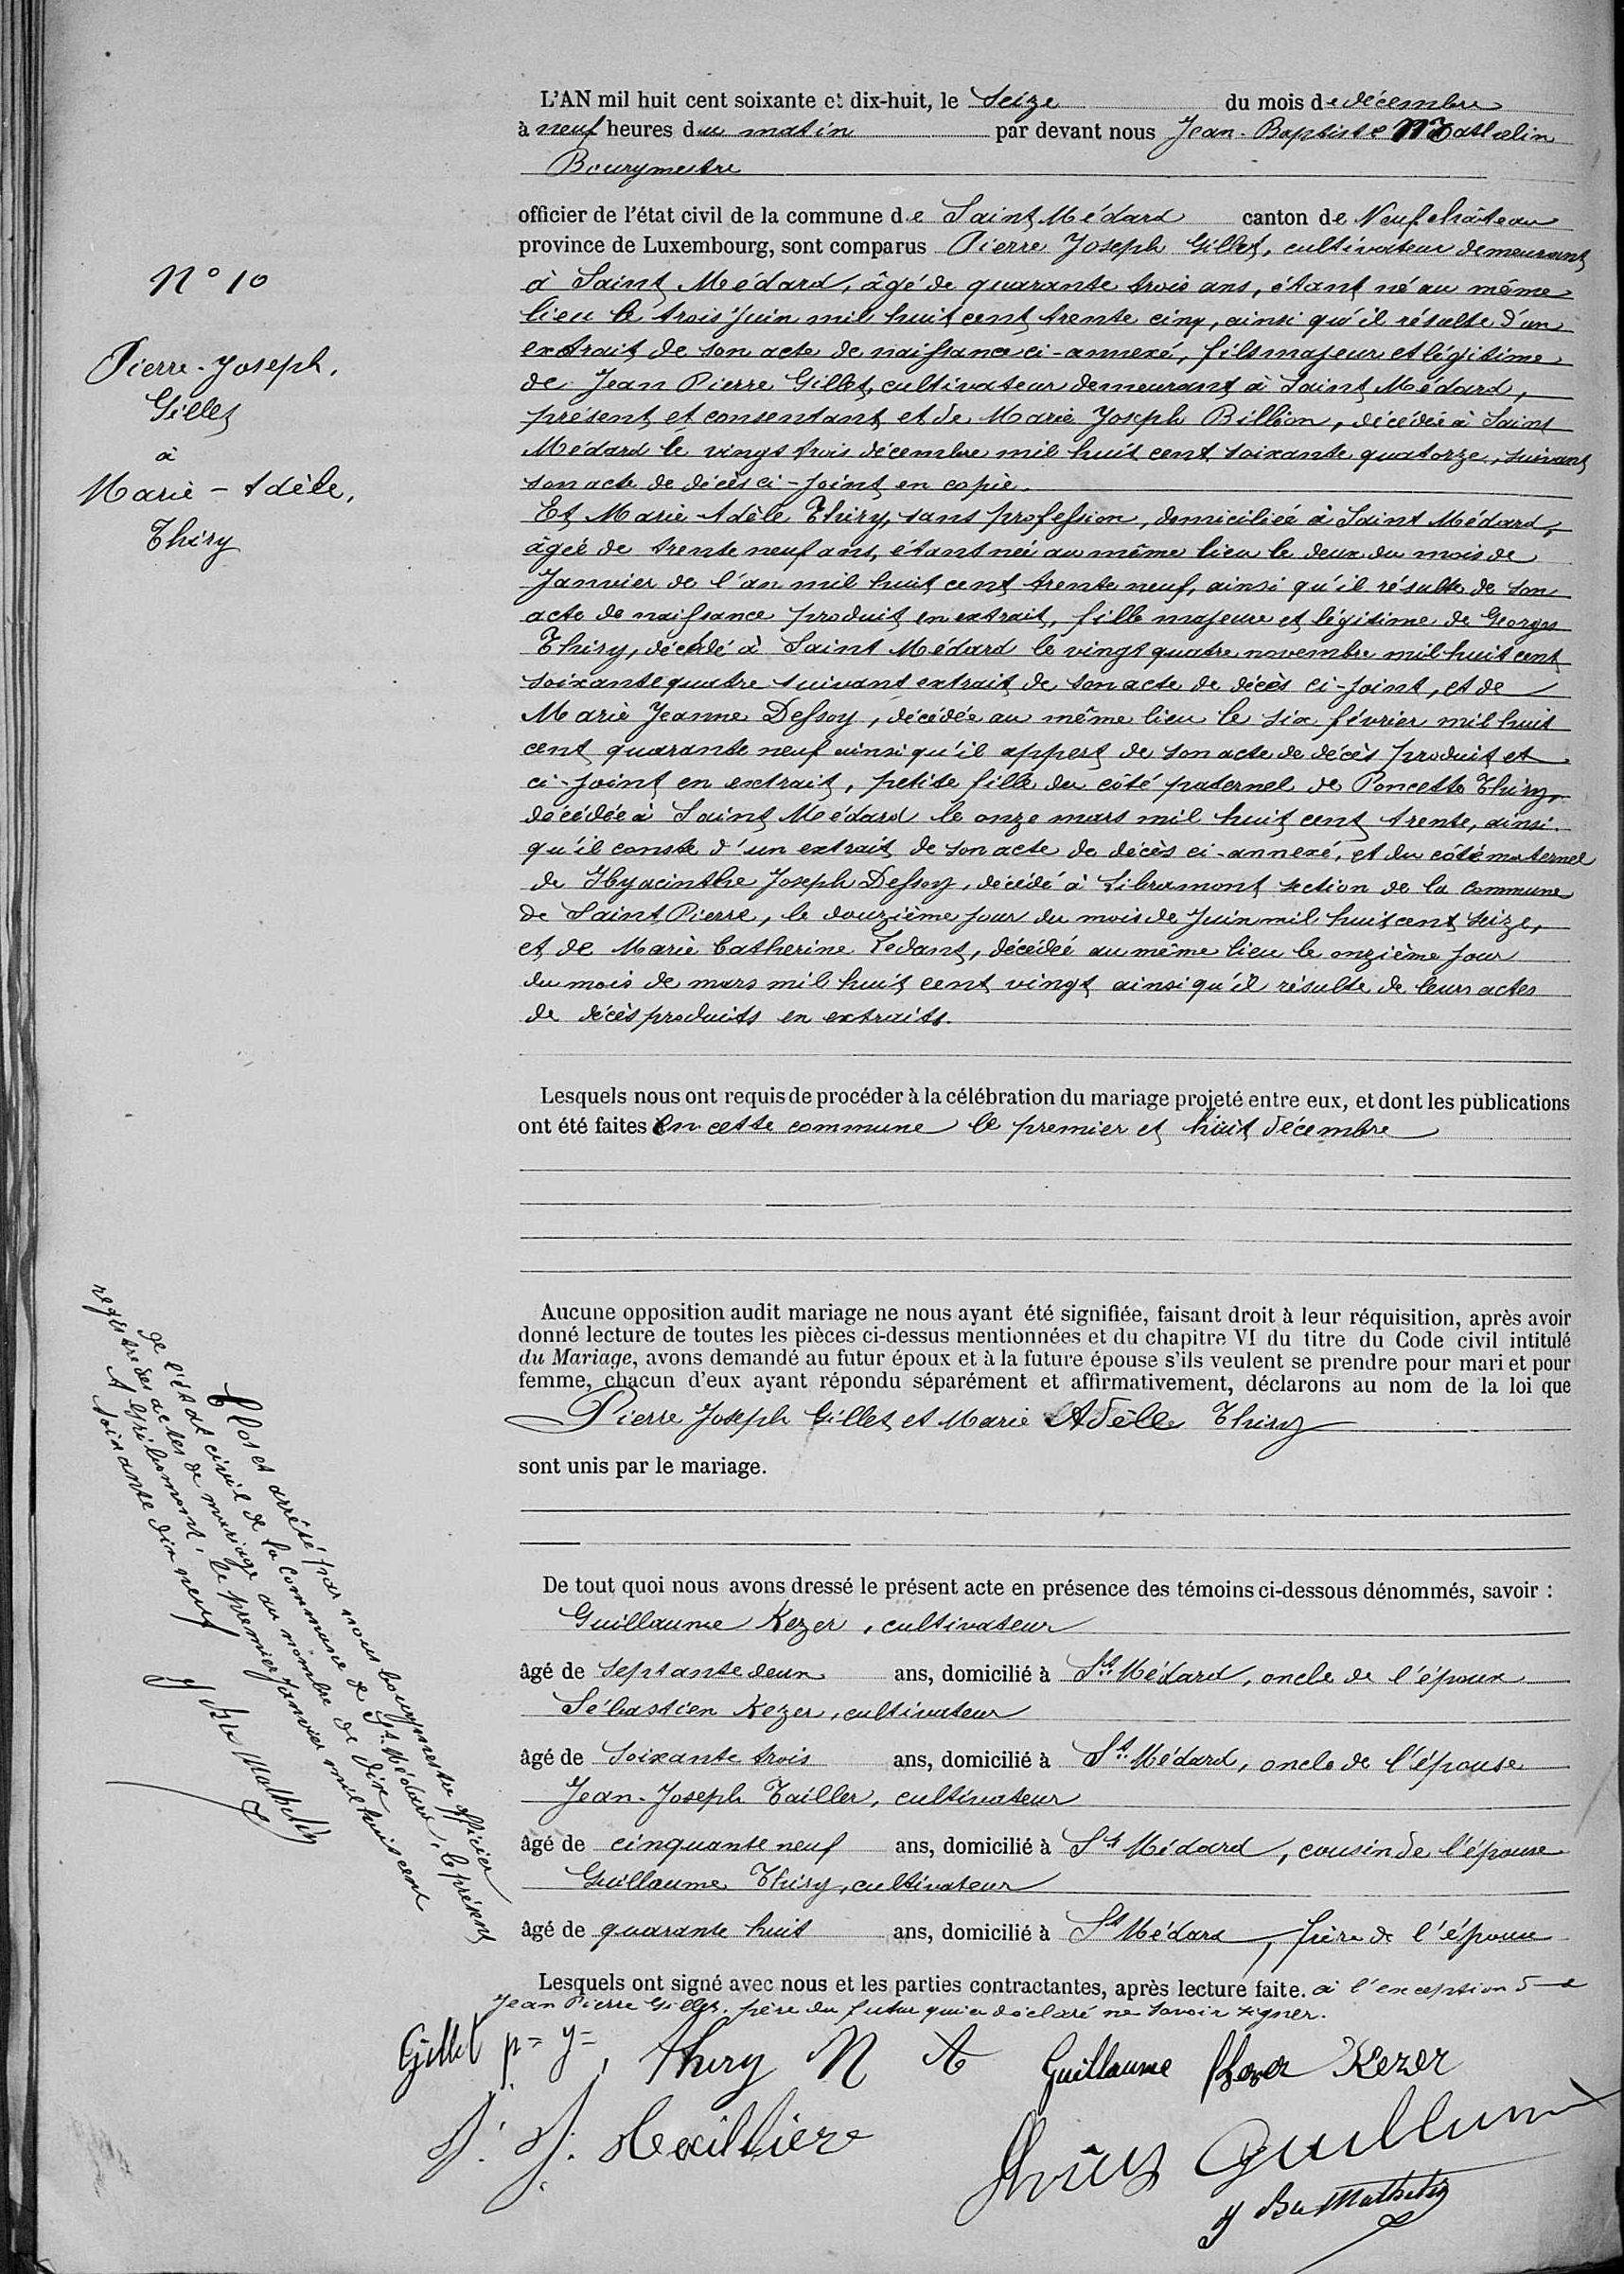 L'AN mil huit cent soixante et dix-huit, le Seize du mois de décembre
à neuf heures du matin par devant nous Jean-Baptiste Mathelin
Bourgmestre
officier de l'état civil de la commune de Saint Médard canton de Neufchâteau
province de Luxembourg, sont comparus Pierre Joseph Gillet, cultivateur demeurant
à Saint Médard, âgé de quarante trois ans, étant né au même
lieu le trois Juin mil huit cent trente cinq, ainsi qu'il résulte d'un
extrait de son acte de naissance ci-annexé, fils majeur et légitime
de Jean Pierre Gillet, cultivateur demeurant à Saint Médard,
présent et consentant et de Marie Joseph Billion, décédée à Saint
Médard le vingt trois décembre mil huit cent soixante quatorze, suivant
son acte de décès ci-joint en copie.
Et Marie-Adèle Thiry, sans profession, domiciliée à Saint Médard,
âgée de trente neuf ans, étant née au même lieu le deux du mois de
Janvier de l'an mil huit cent trente neuf, ainsi qu'il résulte de son
acte de naissance produit en extrait, fille majeure et légitime de Georges
Thiry, décédé à Saint Médard le vingt quatre novembre mil huit cent
soixante quatre suivant extrait de son acte de décès ci-joint, et de
Marie Jeanne Dessoy, décédée au même lieu le six février mil huit
cent quarante neuf ainsi qu'il appert de son acte de décès produit et
ci-joint en extrait, petite fille du côté paternel de Poncette Thiry,
décédée à Saint Médard le onze mars mil huit cent trente, ainsi
qu'il conste d'un extrait de son acte de décès ci-annexé, et du côté maternel
de Hyacinthe Joseph Dessoy, décédé à Libramont section de la commune
de Saint Pierre, le douzième jour du mois de Juin mil huit cent seize,
et de Marie Catherine Ledant, décédée au même lieu le onzième jour
du mois de mars mil huit cent vingt ainsi qu'il résulte de leurs actes
de décès produits en extraits.
Lesquels nous ont requis de procéder à la célébration du mariage projeté entre eux, et dont les publications
ont été faites en cette commune le premier et huit décembre
Aucune opposition audit mariage ne nous ayant été signifiée, faisant droit à leur réquisition, après avoir
donné lecture de toutes les pièces ci-dessus mentionnées et du chapitre VI du titre du Code civil intitulé
du Mariage, avons demandé au futur époux et à la future épouse s'ils veulent se prendre pour mari et pour
femme, chacun d'eux ayant répondu séparément et affirmativement, déclarons au nom de la loi que
Pierre Joseph Gillet et Marie Adèle Thiry
sont unis par le mariage.
De tout quoi nous avons dressé le présent acte en présence des témoins ci-dessous dénommés, savoir :
Guillaume Kezer, cultivateur
âgé de septante deux ans, domicilié à St Médard, oncle de l'époux
Sébastien Kezer, cultivateur
âgé de soixante trois ans, domicilié à St Médard, oncle de l'épouse
Jean-Joseph Tailler, cultivateur
âgé de cinquante neuf ans, domicilié à St Médard, cousin de l'épouse
Guillaume Thiry, cultivateur
âgé de quarante huit ans, domicilié à St Médard, frère de l'épouse
Lesquels ont signé avec nous et les parties contractantes, après lecture faite. à l'exception de
Jean Pierre Gillet, père du futur qui a déclaré ne savoir signer.
Gillet p=j=, thiry M A Guillaume Kezer Kezer
J. J. Taillière
thiry Guillaume
J Bte Mathelin
N° 10
Pierre-Joseph,
Gillet
à
Marie-Adèle,
Thiry
Clos et arrêté par nous bourgmestre officier
de l'état civil de la commune de St. Médard, le présent
registre des actes de mariage au nombre de dix
A Gribomont, le premier Janvier mil huit cent
soixante dix neuf
J Bte Mathelin